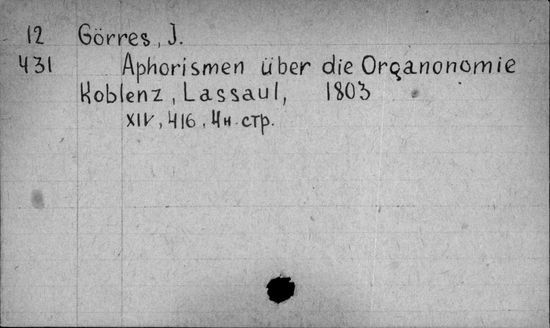 12 Görres, J.
431 Aphorismen über die Organonomie
Koblenz, Lassaul, 1803
XIV, 416, 4н. стр.